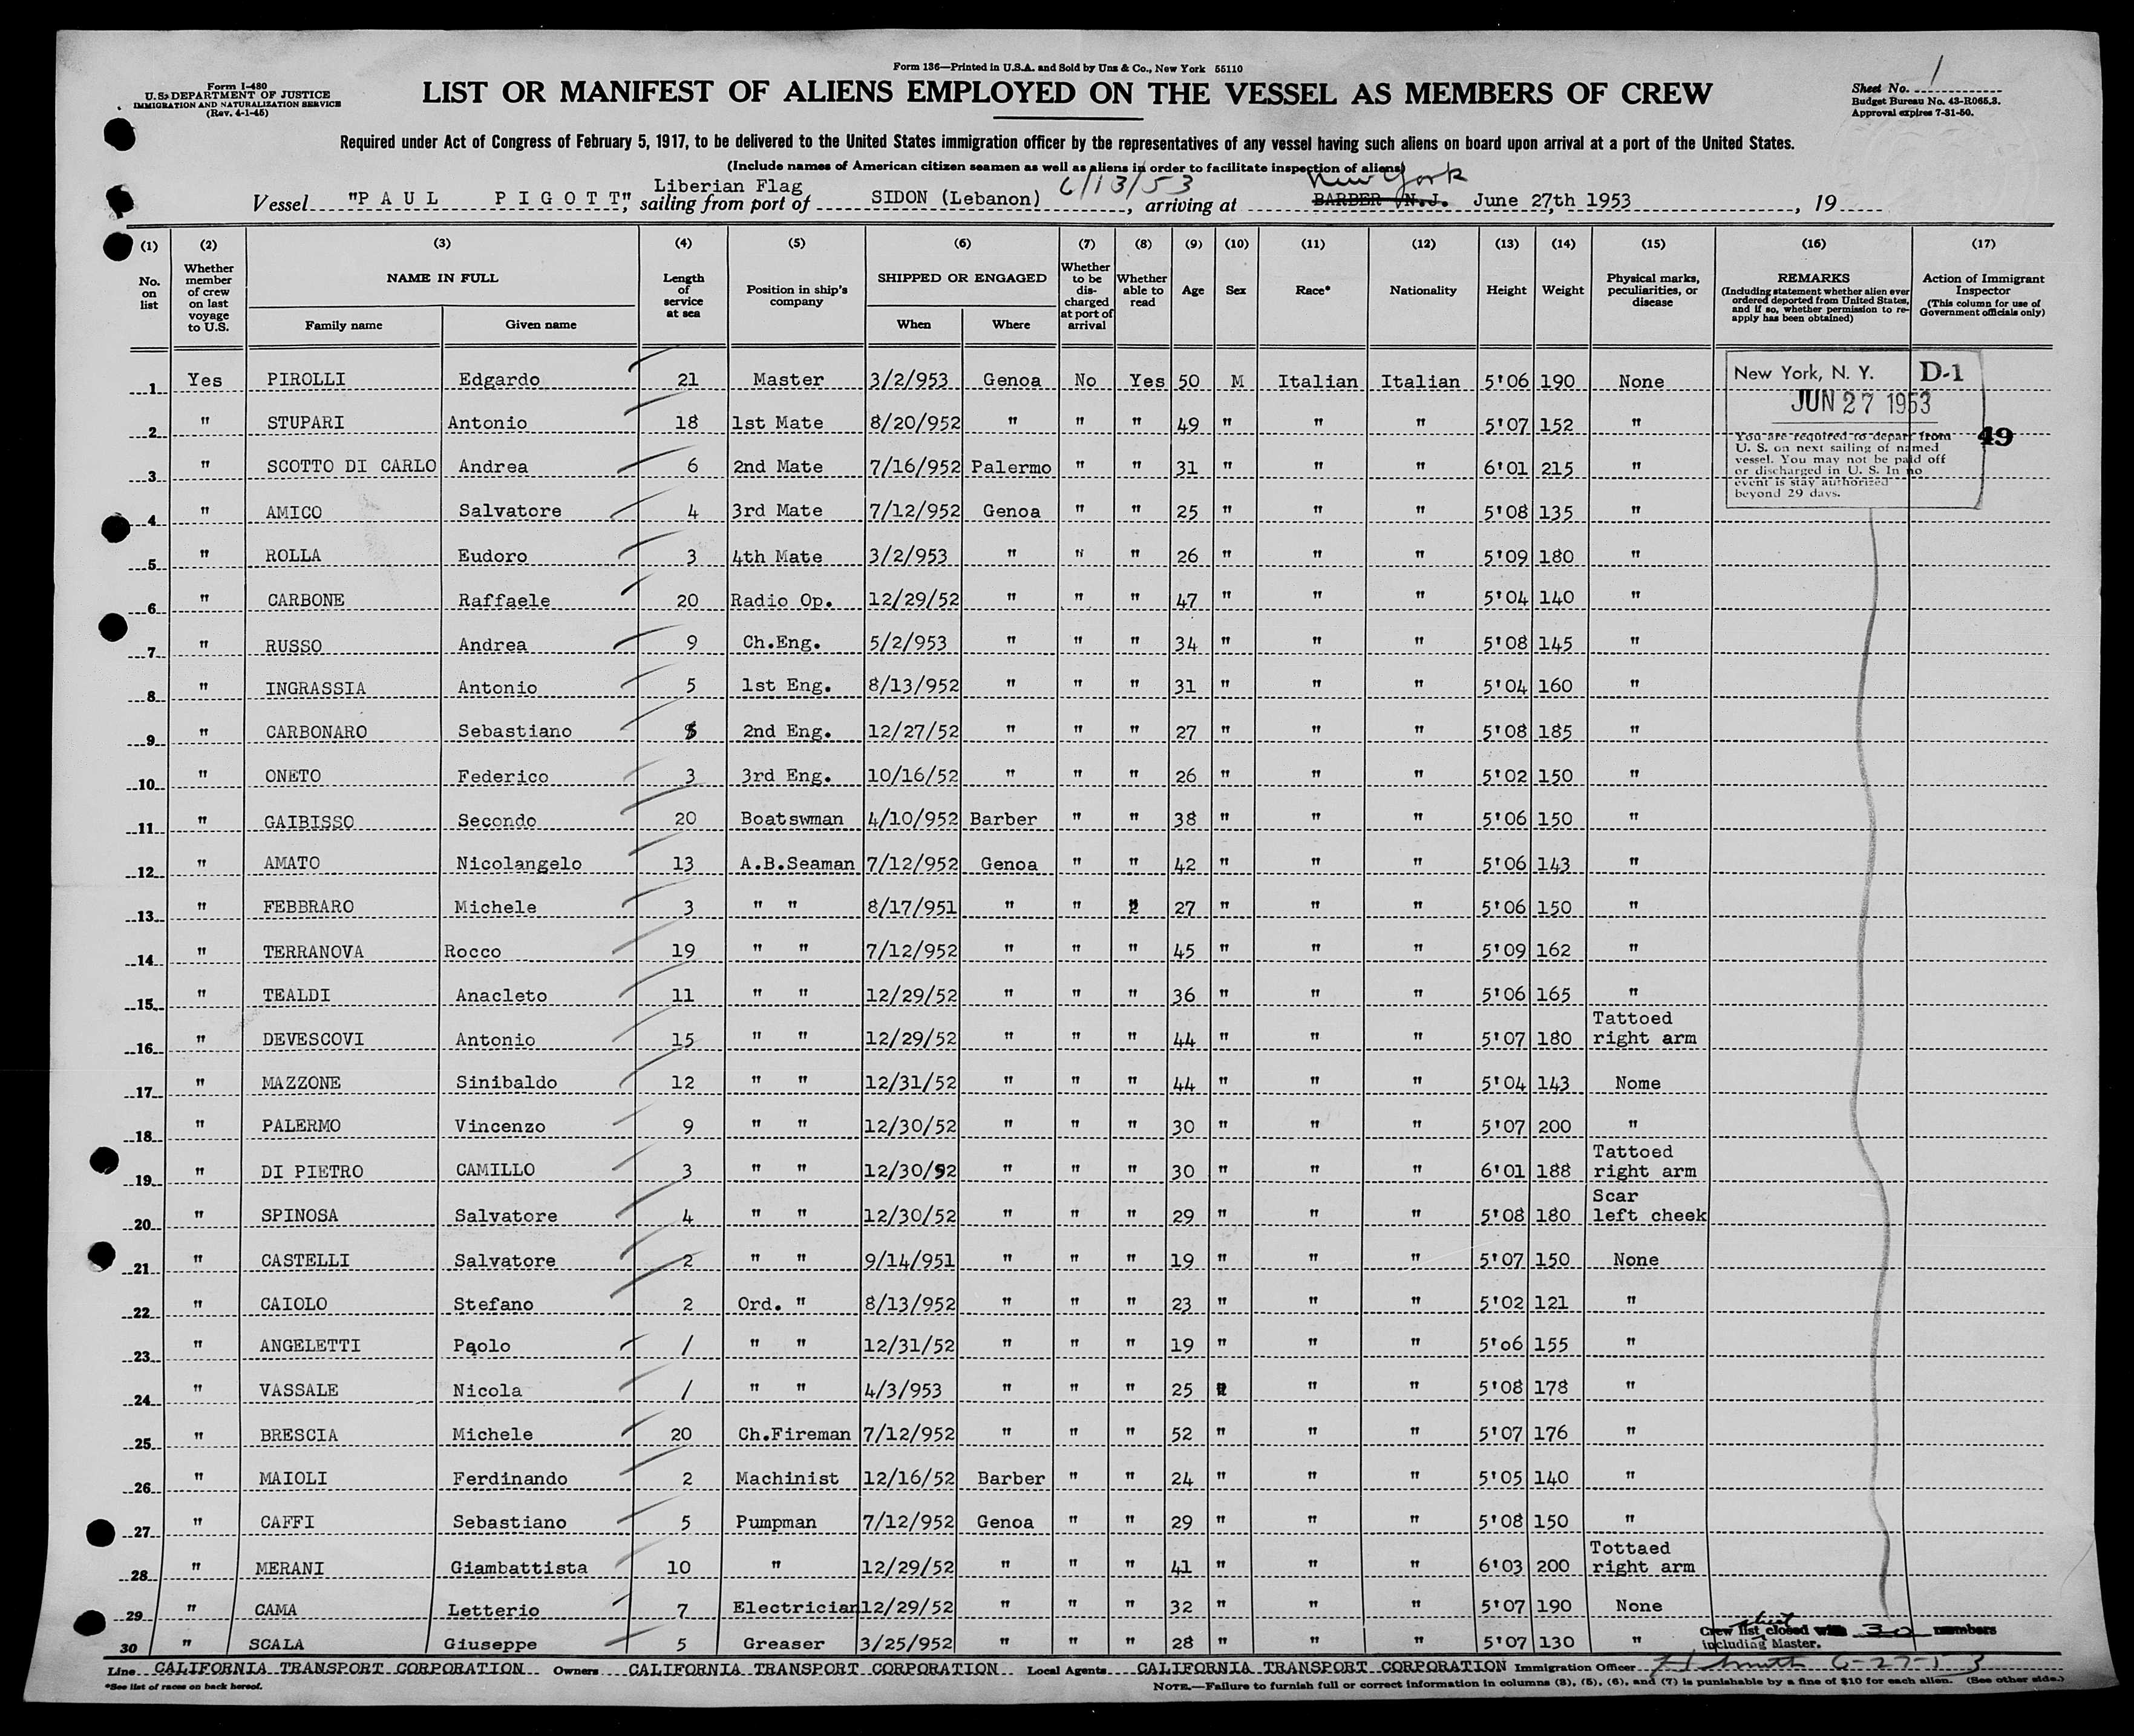 Form 136—Printed in U.S.A. and Sold by Unz & Co., New York 55110
Form I-480
U.S. DEPARTMENT OF JUSTICE
IMMIGRATION AND NATURALIZATION SERVICE
(Rev. 4-1-45)
LIST OR MANIFEST OF ALIENS EMPLOYED ON THE VESSEL AS MEMBERS OF CREW
Sheet No. 1
Budget Bureau No. 43-R065.3.
Approval expires 7-31-50.
Required under Act of Congress of February 5, 1917, to be delivered to the United States immigration officer by the representatives of any vessel having such aliens on board upon arrival at a port of the United States.
(Include names of American citizen seamen as well as aliens in order to facilitate inspection of aliens)
Liberian Flag 6/13/53 New York
Vessel "PAUL PIGOTT", sailing from port of SIDON (Lebanon), arriving at BARBER N.J. June 27th 1953, 19
(1) (2) (3) (4) (5) (6) (7) (8) (9) (10) (11) (12) (13) (14) (15) (16) (17)
No. on list
Whether member of crew on last voyage to U.S.
NAME IN FULL
Family name Given name
Length of service at sea
Position in ship's company
SHIPPED OR ENGAGED
When Where
Whether to be discharged at port of arrival
Whether able to read
Age
Sex
Race*
Nationality
Height
Weight
Physical marks, peculiarities, or disease
REMARKS
(Including statement whether alien ever ordered deported from United States, and if so, whether permission to reapply has been obtained)
Action of Immigrant Inspector
(This column for use of Government officials only)
1 Yes PIROLLI Edgardo 21 Master 3/2/953 Genoa No Yes 50 M Italian Italian 5'06 190 None
2 " STUPARI Antonio 18 1st Mate 8/20/952 " " " 49 " " " 5'07 152 "
3 " SCOTTO DI CARLO Andrea 6 2nd Mate 7/16/952 Palermo " " 31 " " " 6'01 215 "
4 " AMICO Salvatore 4 3rd Mate 7/12/952 Genoa " " 25 " " " 5'08 135 "
5 " ROLLA Eudoro 3 4th Mate 3/2/953 " " " 26 " " " 5'09 180 "
6 " CARBONE Raffaele 20 Radio Op. 12/29/52 " " " 47 " " " 5'04 140 "
7 " RUSSO Andrea 9 Ch.Eng. 5/2/953 " " " 34 " " " 5'08 145 "
8 " INGRASSIA Antonio 5 1st Eng. 8/13/952 " " " 31 " " " 5'04 160 "
9 " CARBONARO Sebastiano 2nd Eng. 12/27/52 " " " 27 " " " 5'08 185 "
10 " ONETO Federico 3 3rd Eng. 10/16/52 " " " 26 " " " 5'02 150 "
11 " GAIBISSO Secondo 20 Boatswman 4/10/952 Barber " " 38 " " " 5'06 150 "
12 " AMATO Nicolangelo 13 A.B.Seaman 7/12/952 Genoa " " 42 " " " 5'06 143 "
13 " FEBBRARO Michele 3 " " 8/17/951 " " " 27 " " " 5'06 150 "
14 " TERRANOVA Rocco 19 " " 7/12/952 " " " 45 " " " 5'09 162 "
15 " TEALDI Anacleto 11 " " 12/29/52 " " " 36 " " " 5'06 165 "
16 " DEVESCOVI Antonio 15 " " 12/29/52 " " " 44 " " " 5'07 180 Tattoed right arm
17 " MAZZONE Sinibaldo 12 " " 12/31/52 " " " 44 " " " 5'04 143 Nome
18 " PALERMO Vincenzo 9 " " 12/30/52 " " " 30 " " " 5'07 200 "
19 " DI PIETRO CAMILLO 3 " " 12/30/52 " " " 30 " " " 6'01 188 Tattoed right arm
20 " SPINOSA Salvatore 4 " " 12/30/52 " " " 29 " " " 5'08 180 Scar left cheek
21 " CASTELLI Salvatore 2 " " 9/14/951 " " " 19 " " " 5'07 150 None
22 " CAIOLO Stefano 2 Ord. " 8/13/952 " " " 23 " " " 5'02 121 "
23 " ANGELETTI Paolo 1 " " 12/31/52 " " " 19 " " " 5'o6 155 "
24 " VASSALE Nicola 1 " " 4/3/953 " " " 25 " " " 5'08 178 "
25 " BRESCIA Michele 20 Ch.Fireman 7/12/952 " " " 52 " " " 5'07 176 "
26 " MAIOLI Ferdinando 2 Machinist 12/16/52 Barber " " 24 " " " 5'05 140 "
27 " CAFFI Sebastiano 5 Pumpman 7/12/952 Genoa " " 29 " " " 5'08 150 "
28 " MERANI Giambattista 10 " 12/29/52 " " " 41 " " " 6'03 200 Tottaed right arm
29 " CAMA Letterio 7 Electrician 12/29/52 " " " 32 " " " 5'07 190 None
30 " SCALA Giuseppe 5 Greaser 3/25/952 " " " 28 " " " 5'07 130 "
New York, N. Y. D-1
JUN 27 1953
49
You are required to depart from
U. S. on next sailing of named
vessel. You may not be paid off
or discharged in U. S. In no
event is stay authorized
beyond 29 days.
sheet
Crew list closed with 30 members
including Master.
Line CALIFORNIA TRANSPORT CORPORATION Owners CALIFORNIA TRANSPORT CORPORATION Local Agents CALIFORNIA TRANSPORT CORPORATION Immigration Officer Smith 6-27-53
*See list of races on back hereof.
NOTE.—Failure to furnish full or correct information in columns (3), (5), (6), and (7) is punishable by a fine of $10 for each alien. (See other side.)